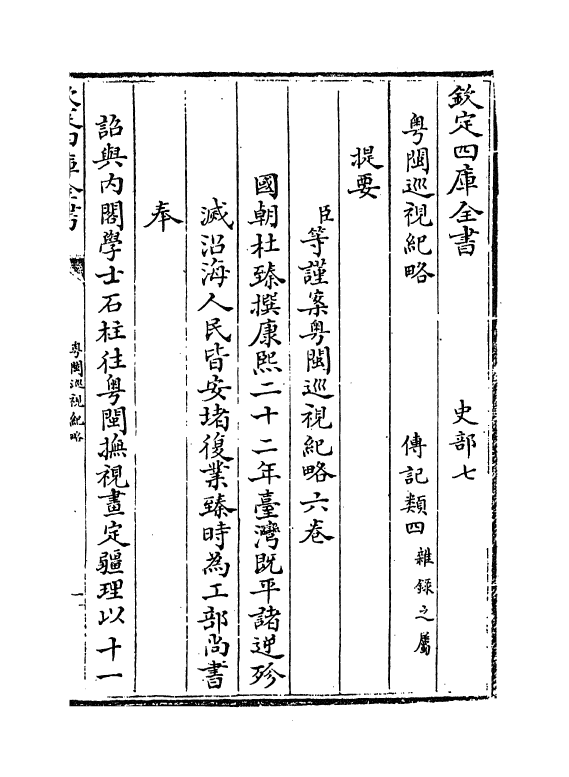 欽定四庫全書 史部七
粤閩巡視紀略 傳記類四 雜録之屬
提要
臣等謹案粤閩巡視紀略六卷
國朝杜臻撰康熙二十二年臺灣既平諸逆殄
滅沿海人民皆安堵復業臻時為工部尚書
奉
詔與内閣學士石柱往粤閩撫視畫定疆理以十一
欽定四庫全書
粤閩巡視紀略
一